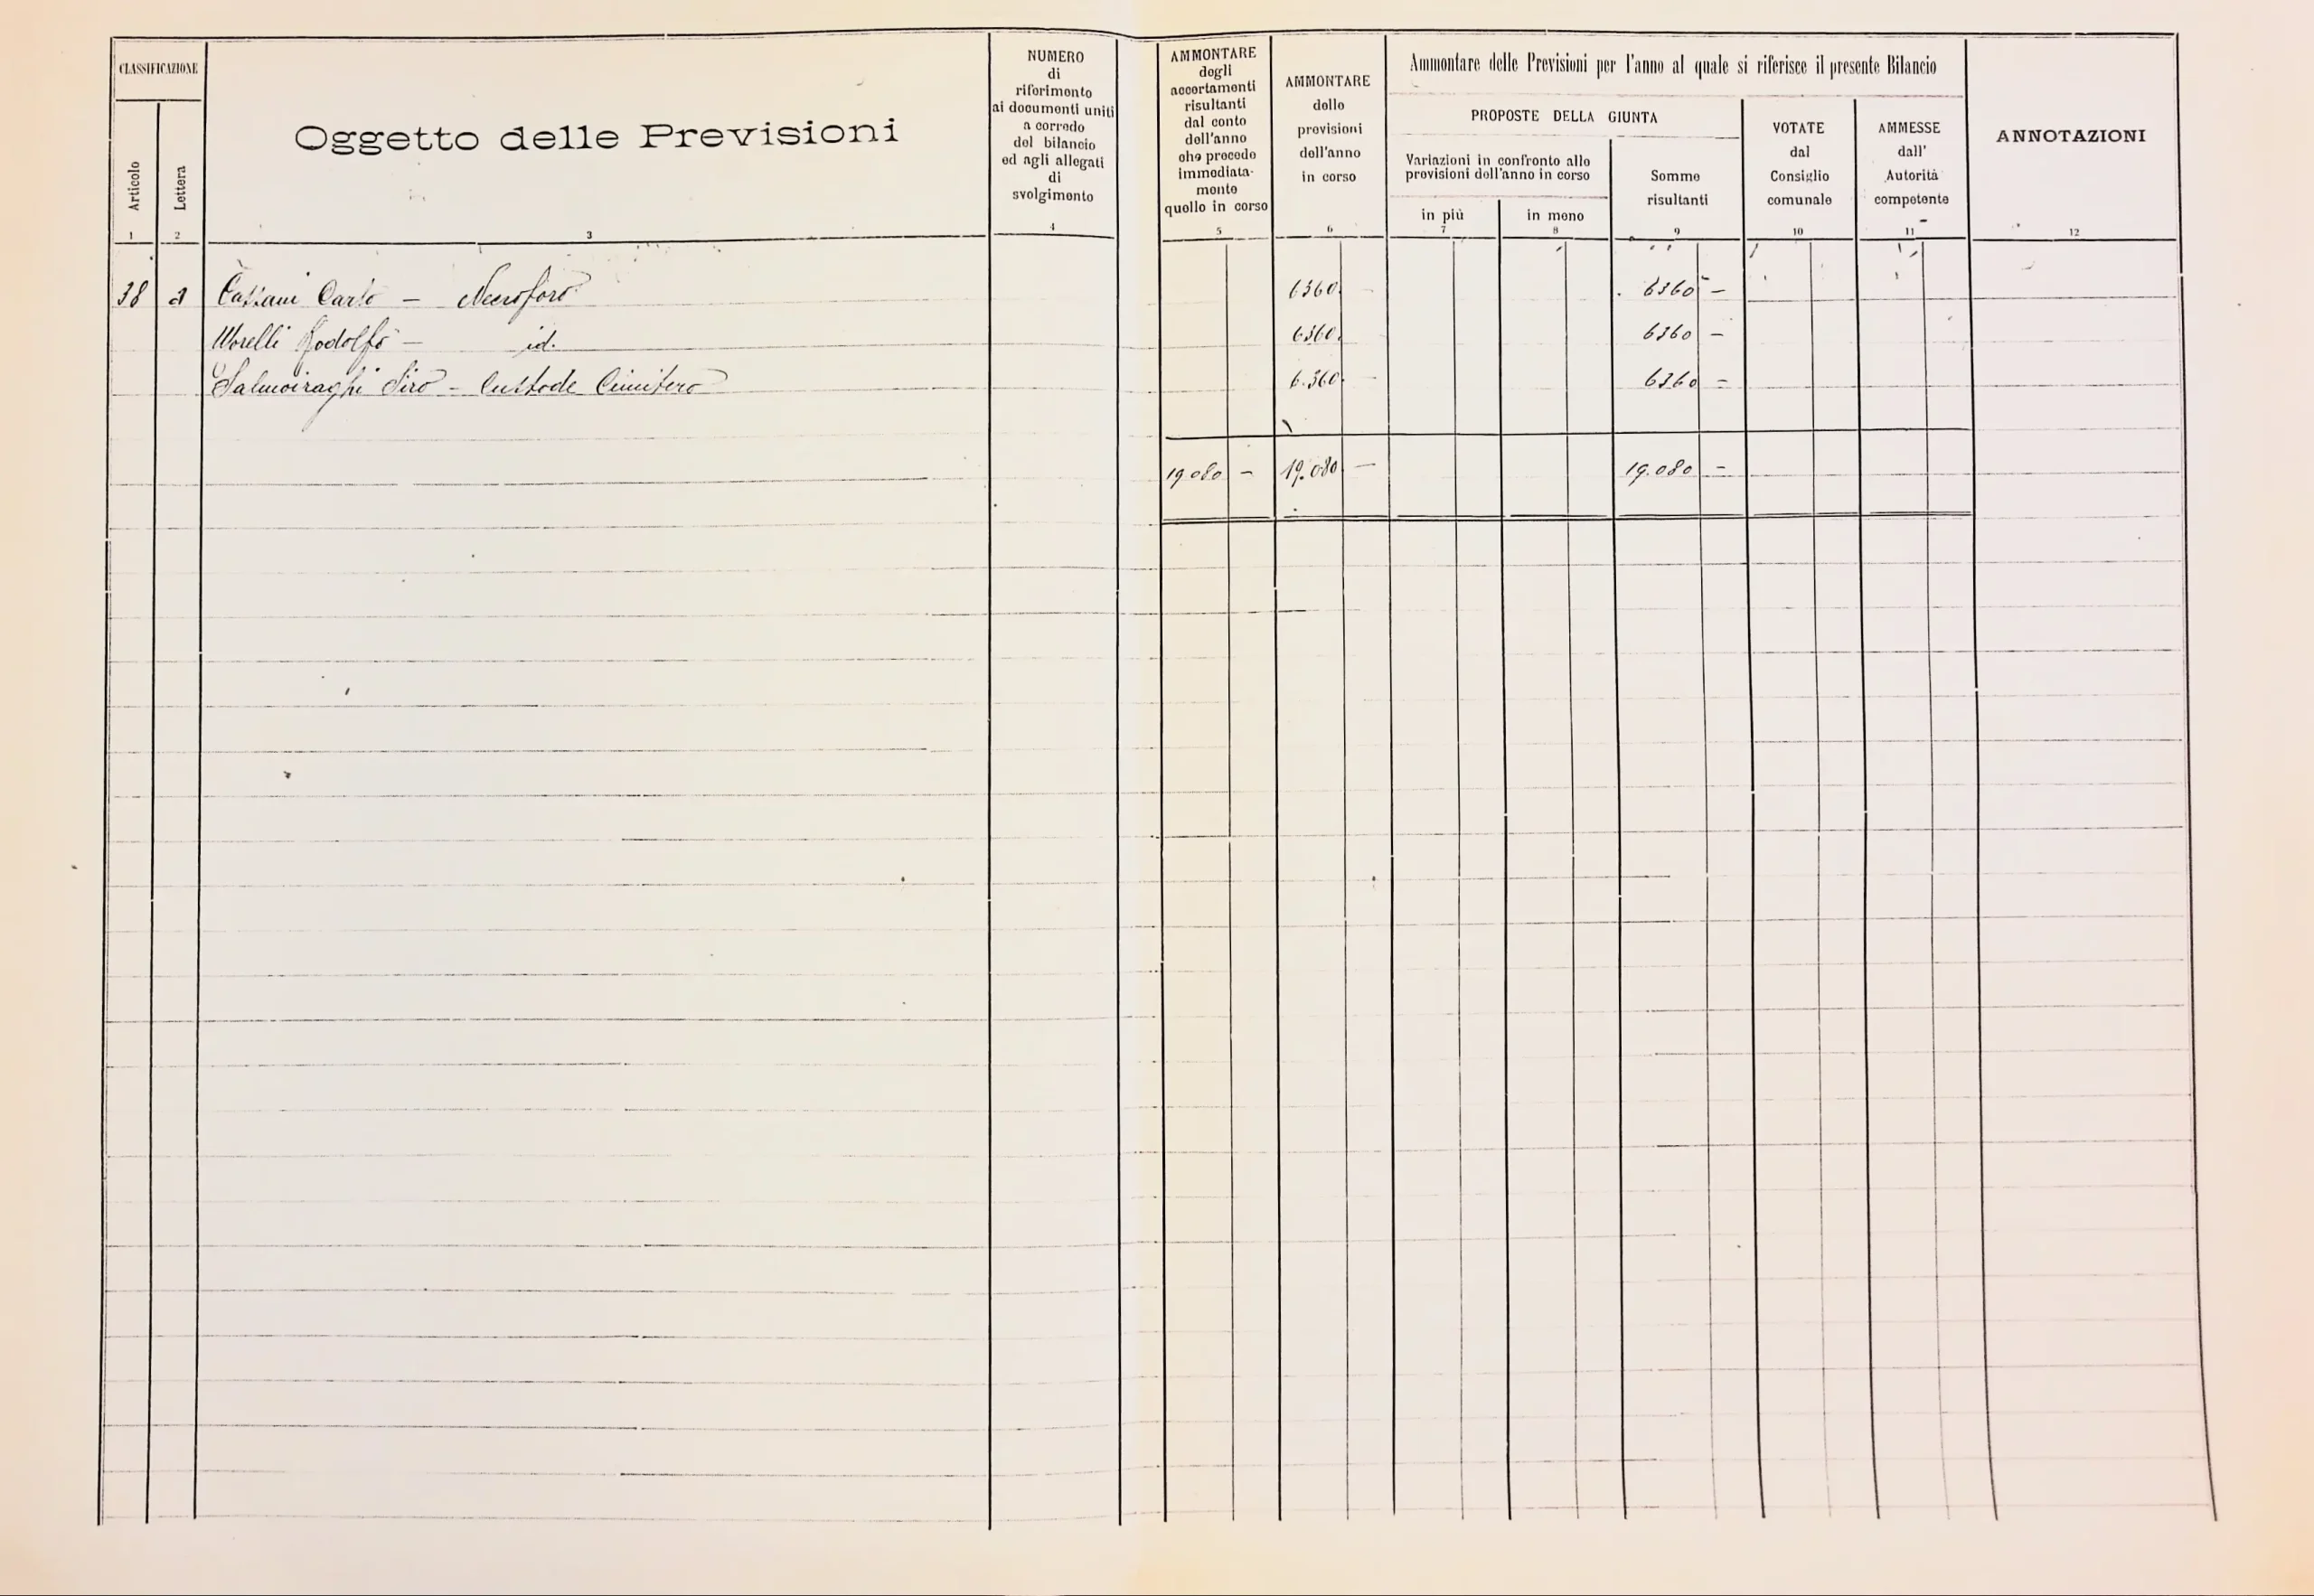 CLASSIFICAZIONE
Articolo
Lettera
Oggetto delle Previsioni
NUMERO
di
riferimento
ai documenti uniti
a corredo
del bilancio
ed agli allegati
di
svolgimento
AMMONTARE
degli
accertamenti
risultanti
dal conto
dell'anno
che precede
immediata-
mente
quello in corso
AMMONTARE
delle
previsioni
dell'anno
in corso
Ammontare delle Previsioni per l'anno al quale si riferisce il presente Bilancio
PROPOSTE DELLA GIUNTA
Variazioni in confronto alle
previsioni dell'anno in corso
in più
in meno
Somme
risultanti
VOTATE
dal
Consiglio
comunale
AMMESSE
dall'
Autorità
competente
ANNOTAZIONI
1 2 3 4 5 6 7 8 9 10 11 12
38 a Cassani Carlo — Necroforo 6360 — 6360 —
Morelli Rodolfo — id. 6360. 6360 —
Salmoiraghi Siro — Custode Cimitero 6.360 — 6360 —
19080 — 19.080 — 19.080 —